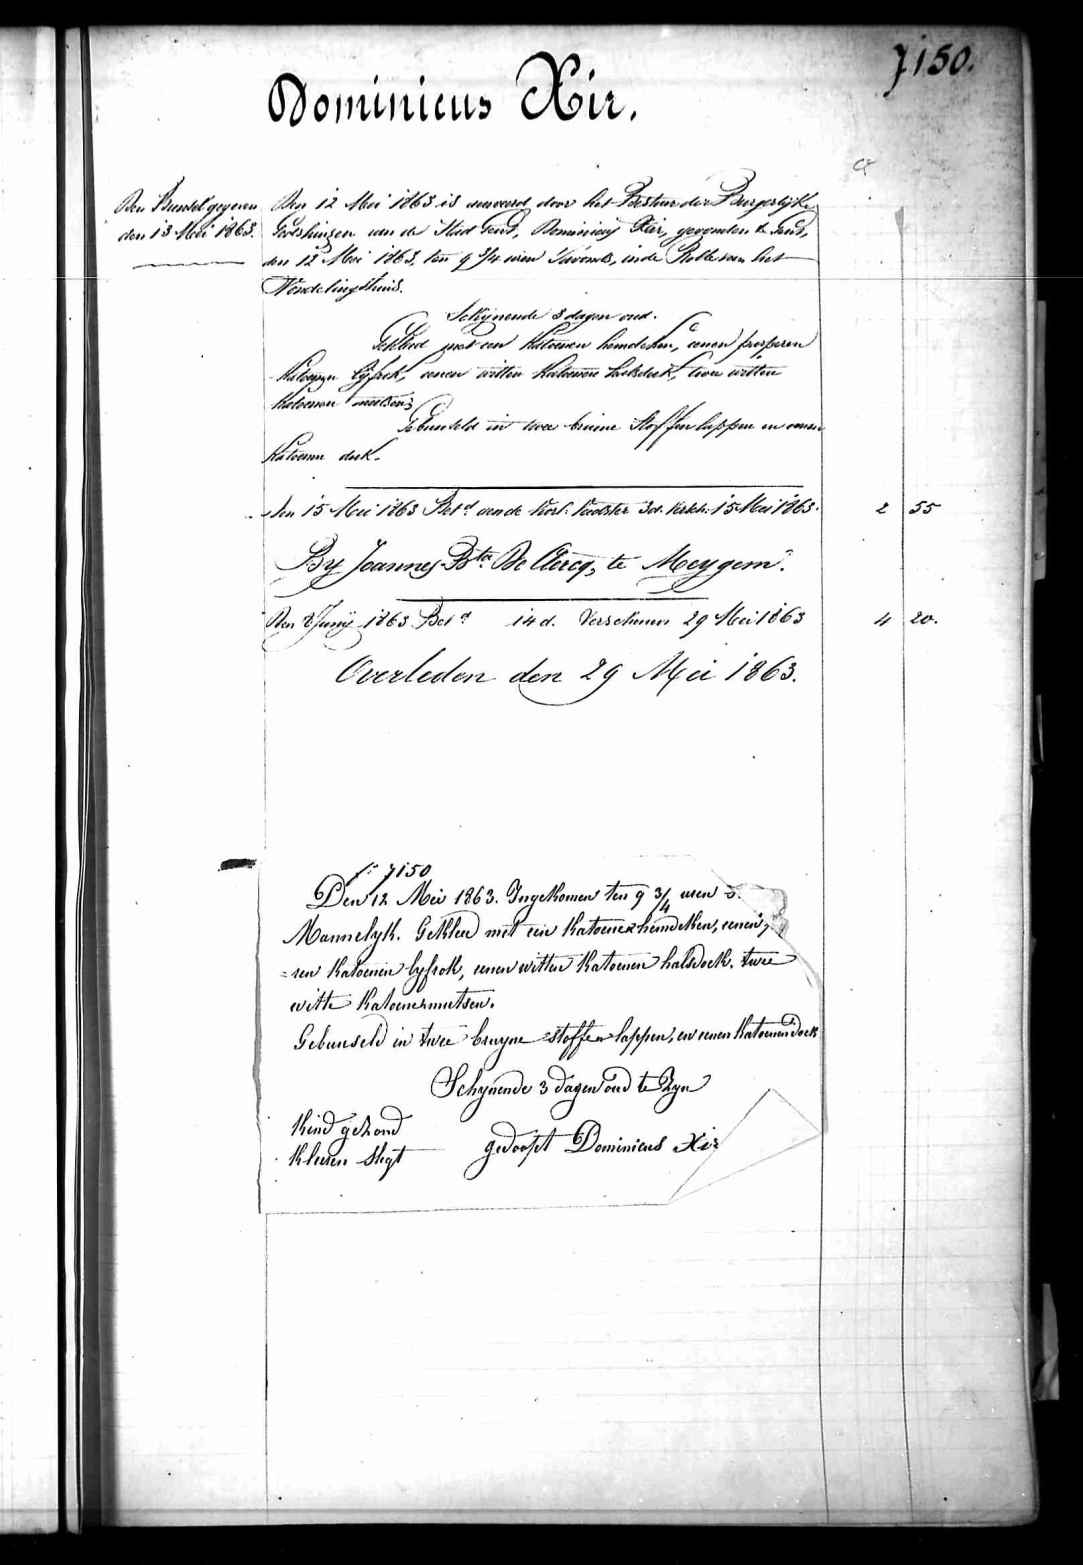 7150.
Dominicus Xir.
Den Bundel gegeven
den 13 Mei 1863.
Den 12 Mei 1863 is aanvaerd door het Bestuer der Burgerlijke
Godshuizen van de Stad Gend, Dominicus Xir, gevonden te Gend,
den 12 Mei 1863, ten 9 3/4 uren 's avonds, in de Rolle van het
Vondelinghuis.
Schijnende 3 dagen oud.
Gekleed met een katoenen hemdeken, eenen persperen
katoenen lyfrok, eenen witten katoenen halsdoek, twee witten
katoenen mutsen;
Gebunseld in twee bruine stoffen lappen en eenen
katoenen doek.
den 15 Mei 1863 Betd aen de 3d. Versch: 15 Mei 1863.
2 55
By Joannes Bta De Clercq, te Meygem.
Den 8 Junij 1863 Betd 14 d. Verschenen 29 Mei 1863
4 20.
Overleden den 29 Mei 1863.
7150
Den 12 Mei 1863. Ingekomen ten 9 3/4 uren
Mannelyk. Gekleed met een katoenen hemdeken, eenen
=ren katoenen lyfrok, eenen witten katoenen halsdoek. twee
witte katoenen mutsen.
Gebunseld in twee bruyne stoffen lappen, en eenen katoenen doek
Schynende 3 dagen oud te zyn
Kind gezond
Kleeren slegt
gedoopt Dominicus Xir